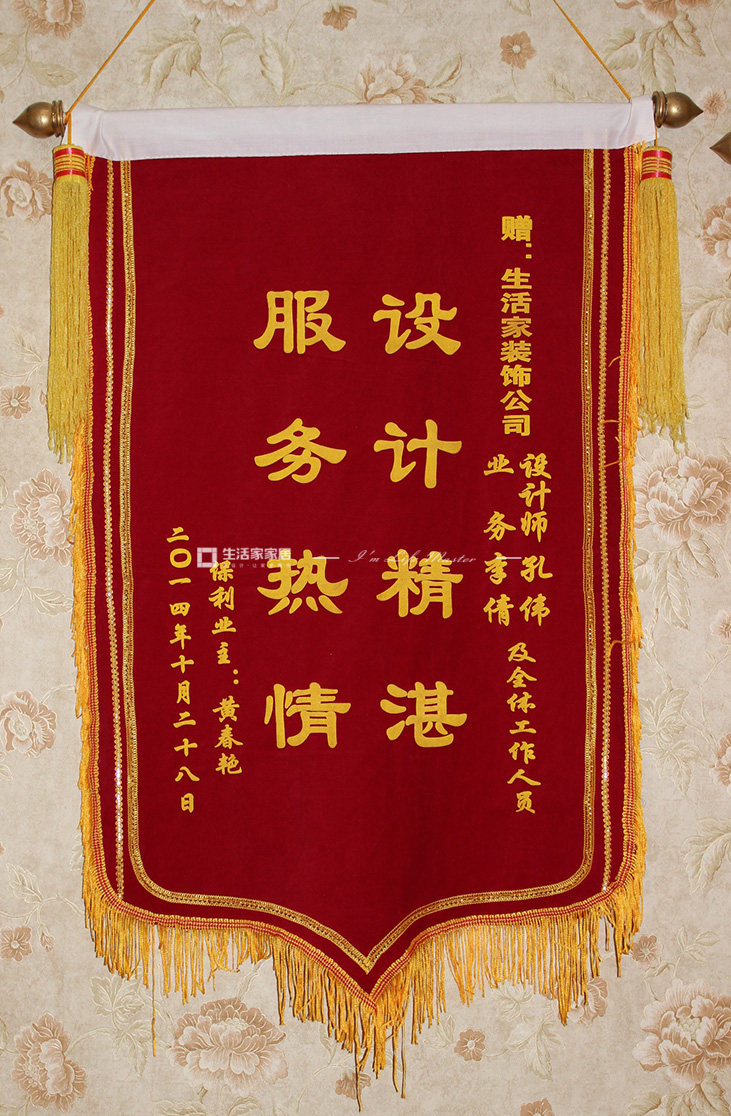 赠：生活家装饰公司
设计师孔伟
业务李倩
及全体工作人员
设计精湛
服务热情
保利业主：黄春艳
二〇一四年十月二十八日
生活家家居